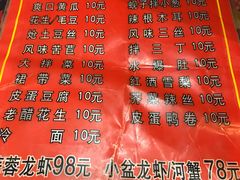 爽口黄瓜 10元
花生/毛豆 10元
炝土豆丝 10元
风味苦苣 10元
大拌菜 10元
裙带菜 10元
皮蛋豆腐 10元
老醋花生 10元
冷面 10元
蚬子拌小葱 10元
辣根木耳 10元
风味三丝 10元
拌三丁 10元
水晶肚 10元
红洒雪梨 10元
菜辣丝 10元
皮蛋鸭卷 10元
蓉龙虾98元 小盆龙虾/河蟹78元